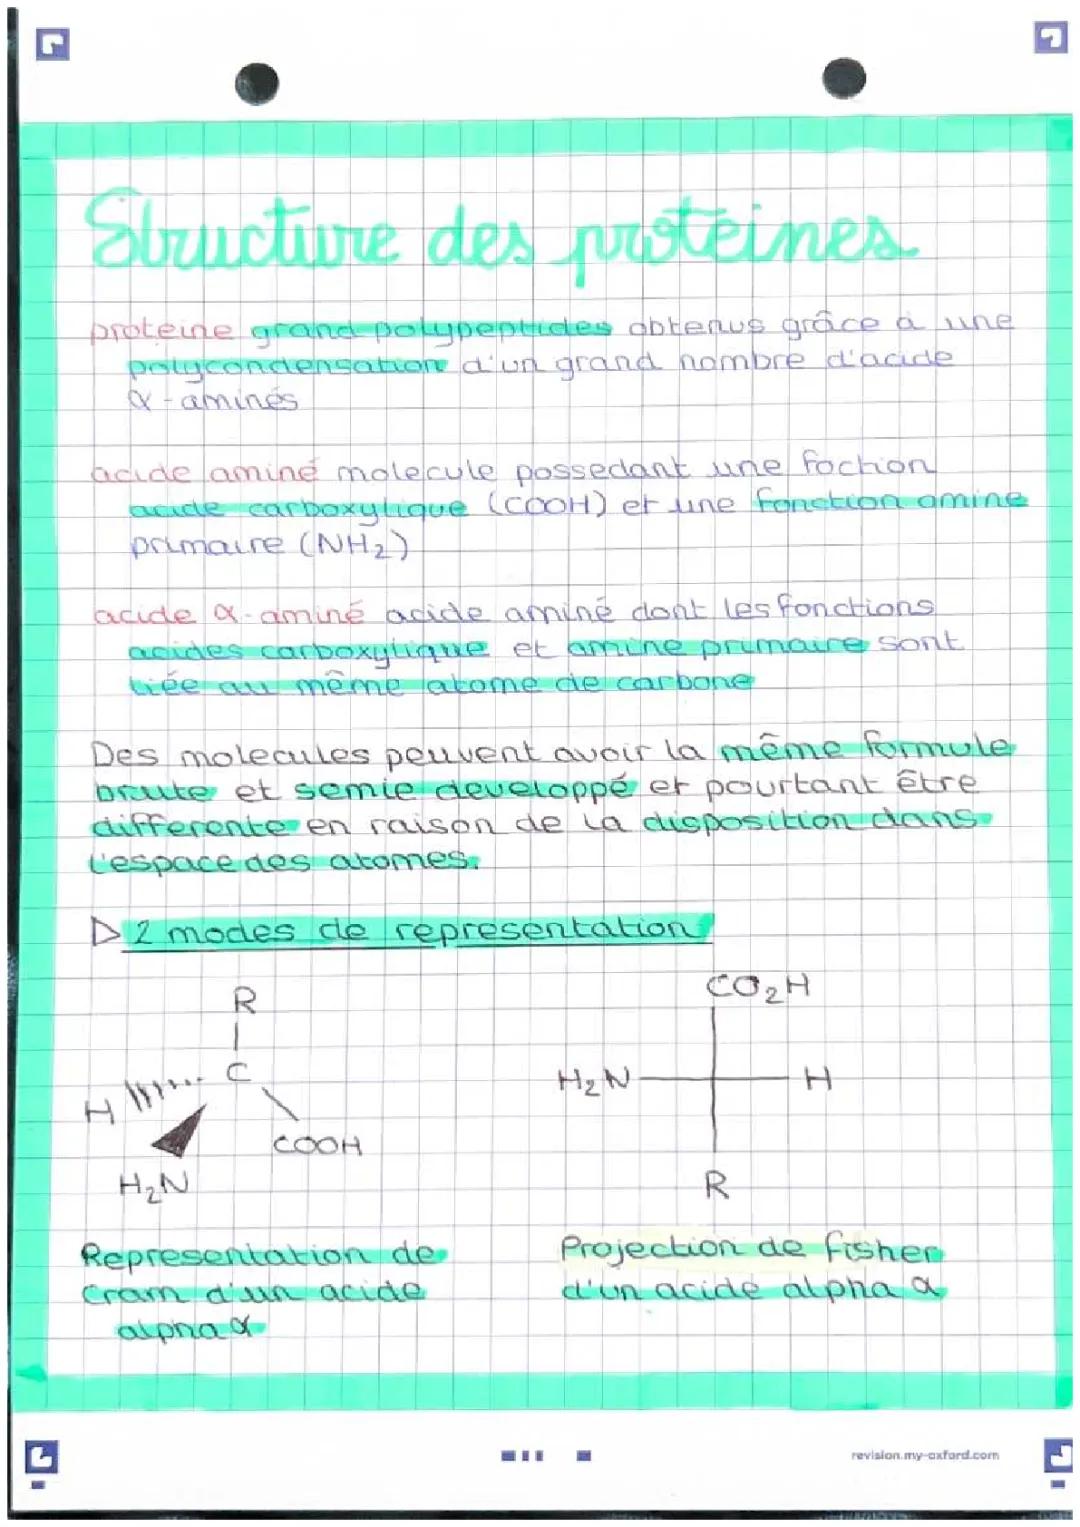 Structure des protéines
proteine grand polypeptides obtenus grâce à une
polycondensation d'un grand nombre d'acide
α-aminés
acide aminé molecule possedant une foction
acide carboxylique (COOH) et une fonction amine
primaire (NH₂)
acide α-aminé acide aminé dont les fonctions
acides carboxylique et amine primaire sont
liée au même atome de carbone
Des molecules peuvent avoir la même formule
brute et semie developpé et pourtant être
differente en raison de la disposition dans
l'espace des atomes.
▷ 2 modes de representation
R
C
H
COOH
H₂N
CO₂H
H₂N
H
R
Representation de
Cram d'un acide
alpha α
Projection de fisher
d'un acide alpha α
revision.my-oxford.com